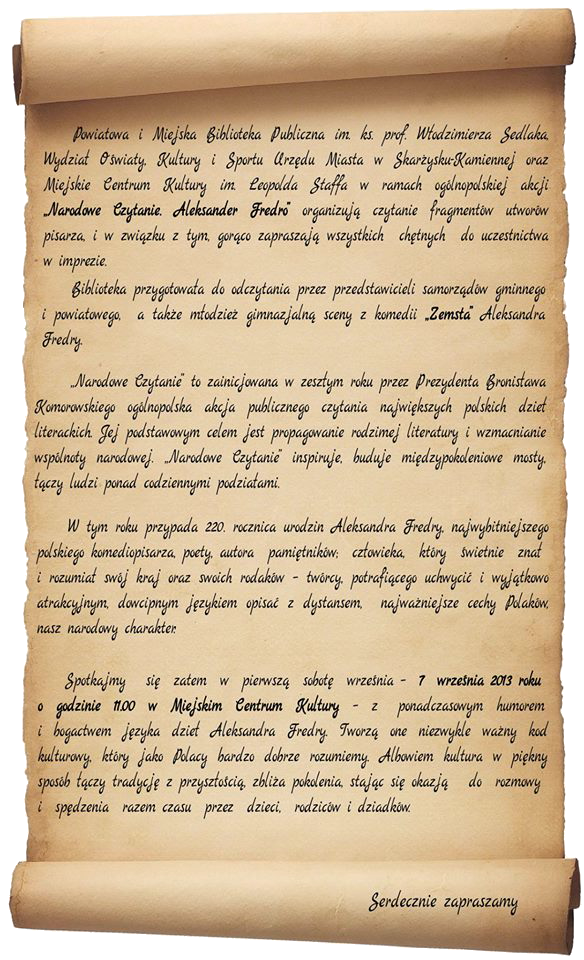 Powiatowa i Miejska Biblioteka Publiczna im. ks. prof. Włodzimierza Sedlaka,
Wydział Oświaty, Kultury i Sportu Urzędu Miasta w Skarżysku-Kamiennej oraz
Miejskie Centrum Kultury im. Leopolda Staffa w ramach ogólnopolskiej akcji
„Narodowe Czytanie. Aleksander Fredro” organizują czytanie fragmentów utworów
pisarza, i w związku z tym, gorąco zapraszają wszystkich chętnych do uczestnictwa
w imprezie.
Biblioteka przygotowała do odczytania przez przedstawicieli samorządów gminnego
i powiatowego, a także młodzież gimnazjalną sceny z komedii „Zemsta” Aleksandra
Fredry.
„Narodowe Czytanie” to zainicjowana w zeszłym roku przez Prezydenta Bronisława
Komorowskiego ogólnopolska akcja publicznego czytania największych polskich dzieł
literackich. Jej podstawowym celem jest propagowanie rodzimej literatury i wzmacnianie
wspólnoty narodowej. „Narodowe Czytanie” inspiruje, buduje międzypokoleniowe mosty,
łączy ludzi ponad codziennymi podziałami.
W tym roku przypada 220. rocznica urodzin Aleksandra Fredry, najwybitniejszego
polskiego komediopisarza, poety, autora pamiętników; człowieka, który świetnie znał
i rozumiał swój kraj oraz swoich rodaków – twórcy, potrafiącego uchwycić i wyjątkowo
atrakcyjnym, dowcipnym językiem opisać z dystansem, najważniejsze cechy Polaków,
nasz narodowy charakter.
Spotkajmy się zatem w pierwszą sobotę września – 7 września 2013 roku
o godzinie 11.00 w Miejskim Centrum Kultury – z ponadczasowym humorem
i bogactwem języka dzieł Aleksandra Fredry. Tworzą one niezwykle ważny kod
kulturowy, który jako Polacy bardzo dobrze rozumiemy. Albowiem kultura w piękny
sposób łączy tradycję z przyszłością, zbliża pokolenia, stając się okazją do rozmowy
i spędzenia razem czasu przez dzieci, rodziców i dziadków.
Serdecznie zapraszamy